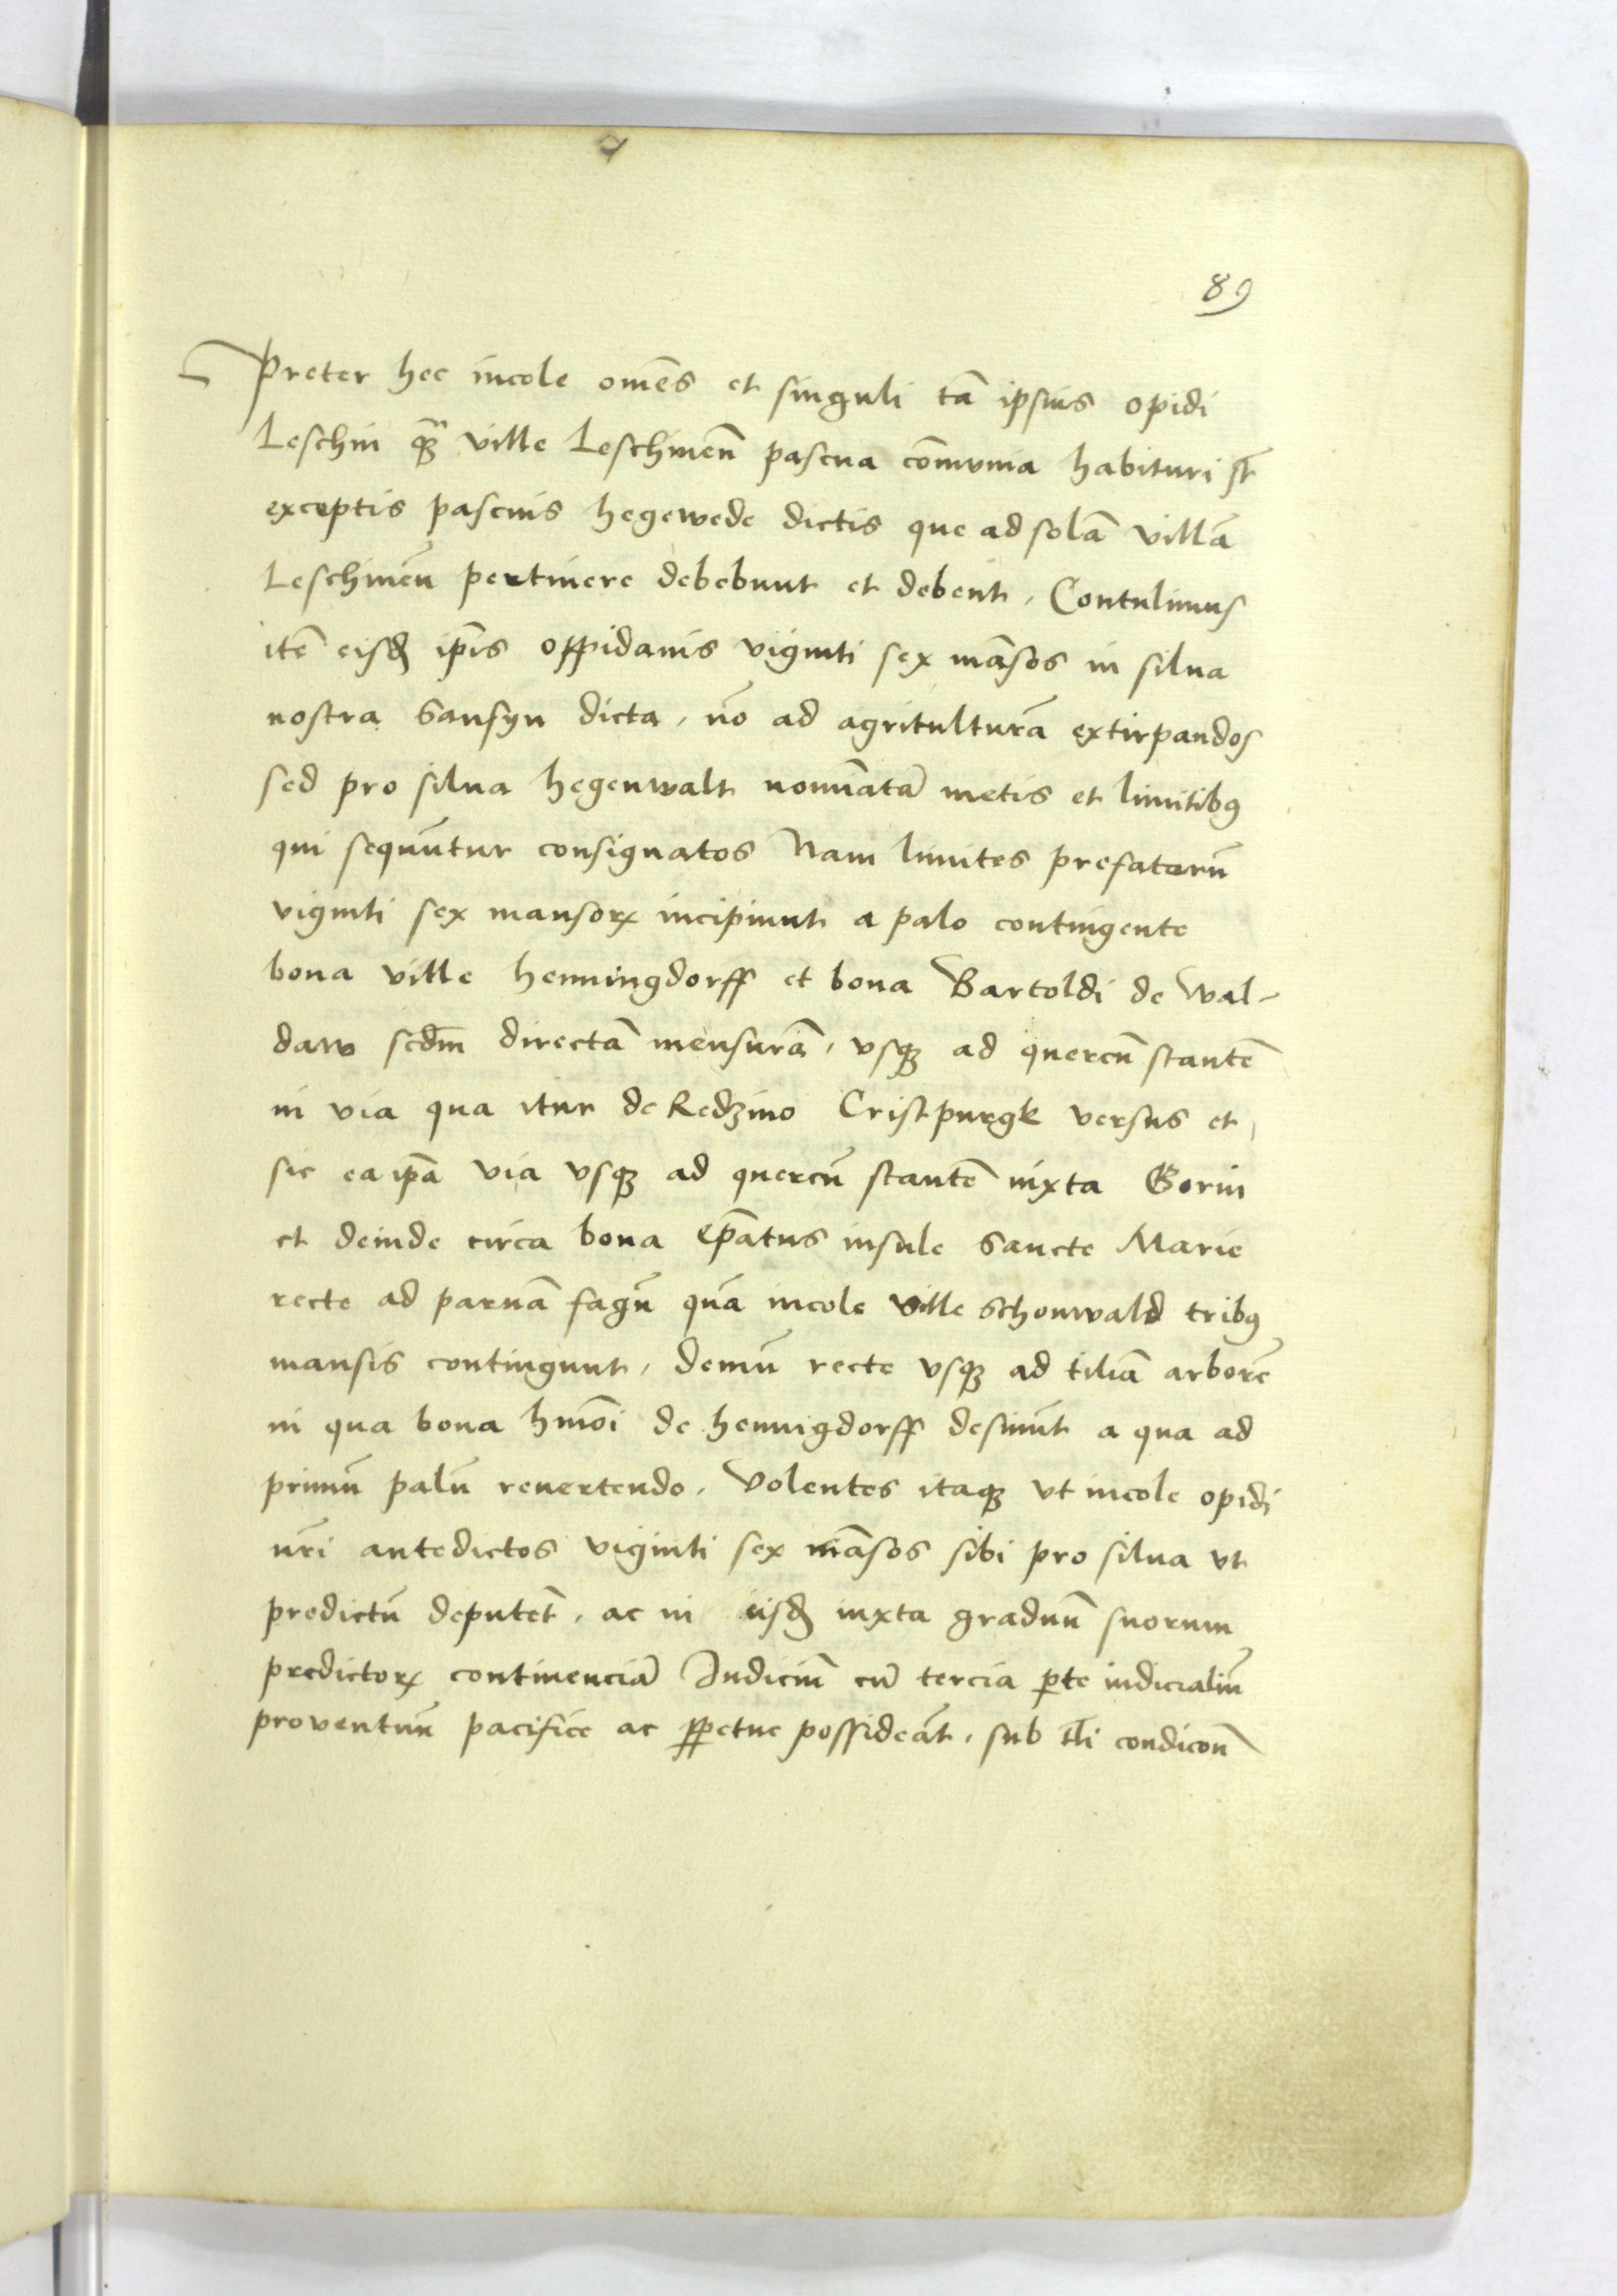 89
Preter hec incole om̄es et singuli tā ipsius opidi
Leschin q̄ꝫ ville Leschinen̄ pascua com̄unia habituri st̄
exceptis pascuis hegewede dictis que ad solā villā
Leschinen̄ pertinere debebunt et debent, Contulimus
itē eisdꝫ ip̄is oppidanis viginti sex māsos in silua
nostra Sansyn dicta, nō ad agritulturā extirpandos
sed pro silua hegenwalt nominatā metis et limitibꝰ
qui sequūtur consignatos Nam limites prefatorū
viginti sex mansoꝝ incipiunt a palo contingente
bona ville henningdorff et bona Bartoldi de Wal-
daw scdm̄ directā mensurā, vsqꝫ ad quercū stantē
in via qua itur de Redzino Cristpurgk versus et
sic ea ip̄a via vsqꝫ ad quercū stantē iuxta Gorin
et deinde circa bona ep̄atus insule Sancte Marie
recte ad paruā fagū quā incole ville Schonwald tribꝰ
mansis contingunt, demū recte vsqꝫ ad tiliā arborē
in qua bona hm̄oi de hennigdorff desinūt a qua ad
primū palū reuertendo, Volentes itaqꝫ vt incole opidi
nr̄i antedictos viginti sex māsos sibi pro silua vt
predictū deputēt, ac in eisdꝫ iuxta graduū suorum
predictoꝝ continenciā Iudiciū cū tercia ꝑte iudicialiū
proventuū pacifice ac ꝑpetue possideāt, sub tl̄i condicōn̄